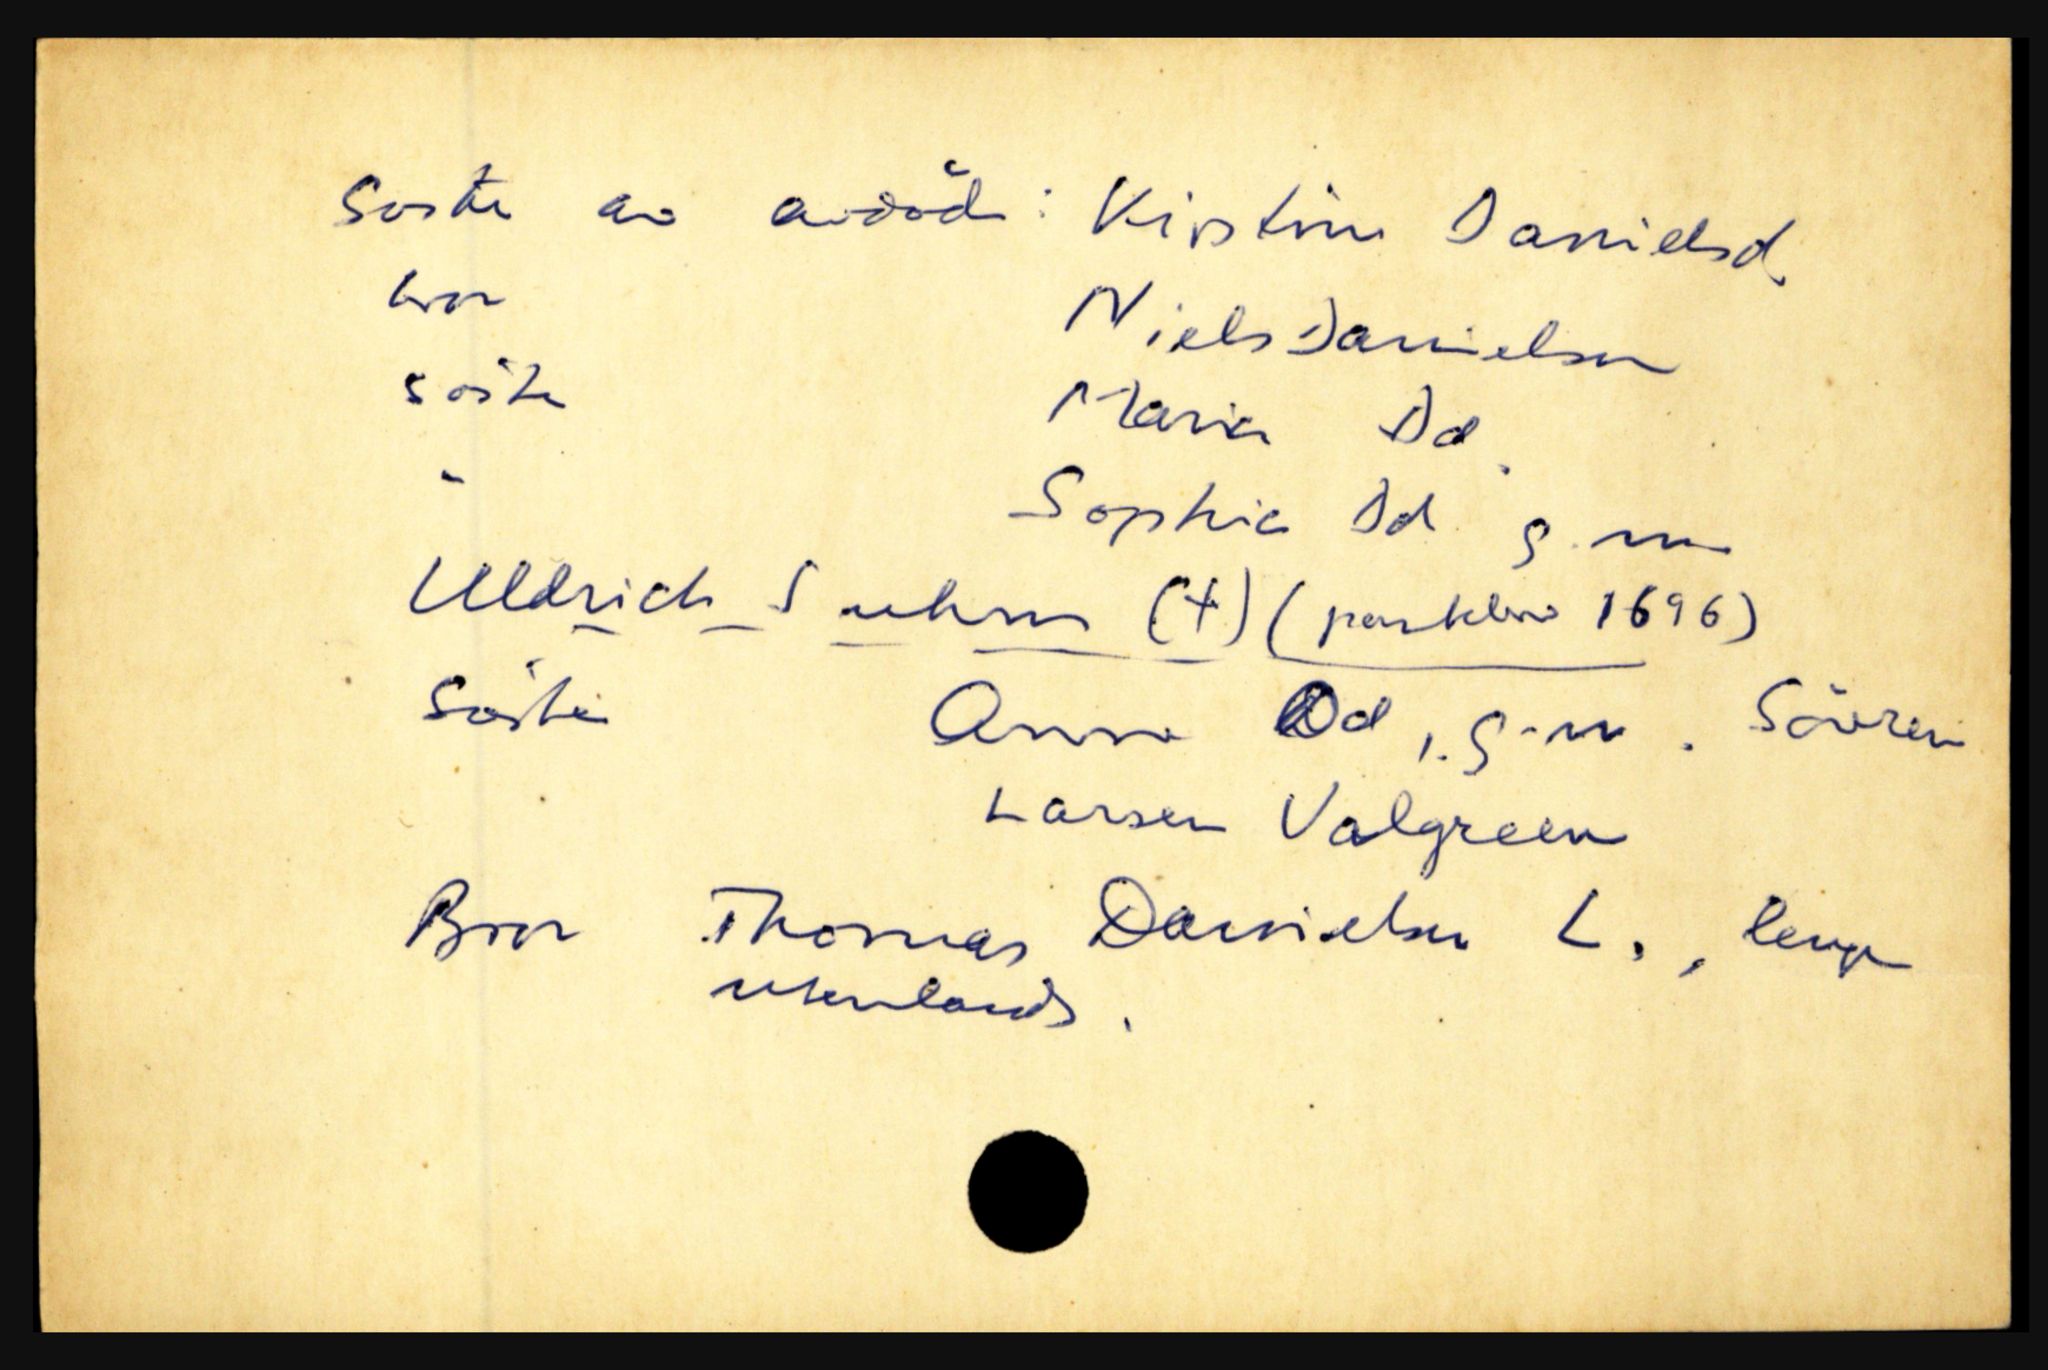 Søster av avdød: Kirstine Danielsd.
bror Niels Danielsen
søster Maria Dd.
" Sophia Dd g.m.
Uldrich Suhm (+) (pantebrev 1696)
Søster Anne Dd, g.m. Søvren
Larsen Valgreen
Bror Thomas Danielsen L., lenge
utenlands.